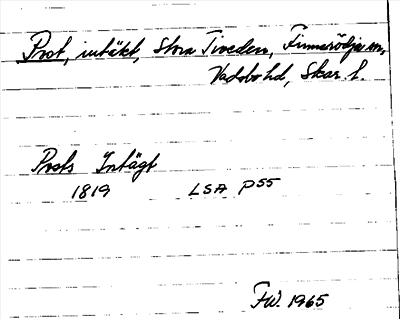 Prot, intäkt, Stora Tiveden, Finnerödja sn,
Vadsbo hd, Skar. l.
Prots Intägt
1819 LSA P55
FW. 1965